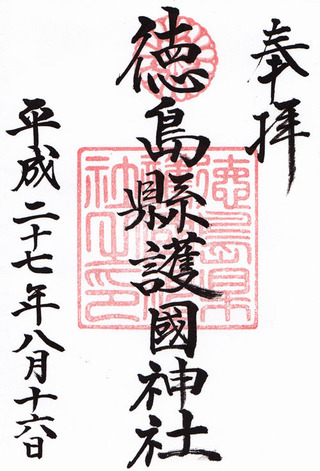 奉拝
徳島縣護國神社
平成二十七年八月十六日
徳島県護國神社之印